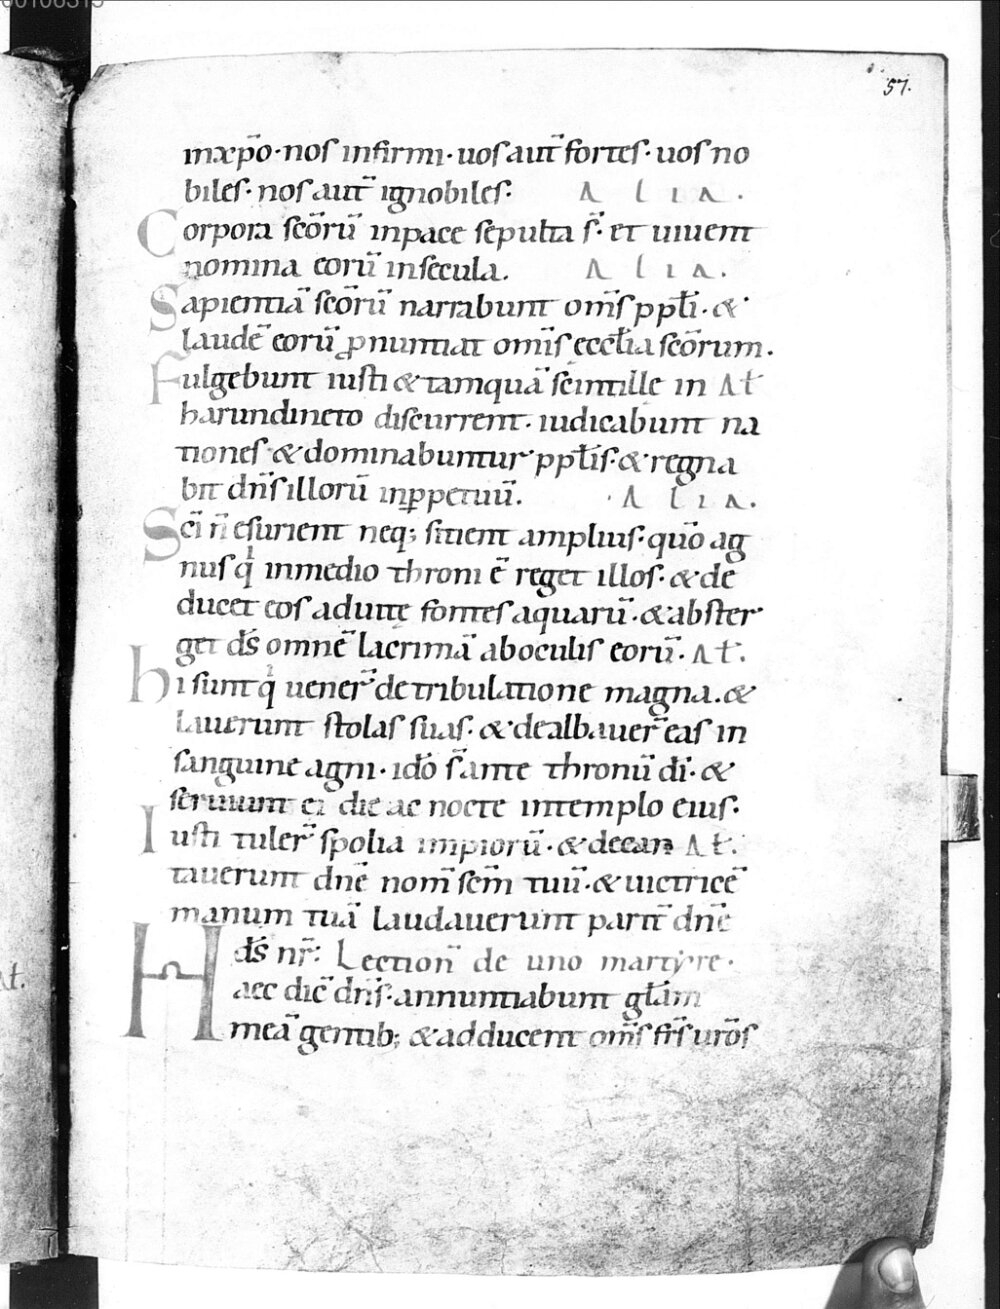 57.
inxp̄o · nos infirmi · uos aut̄ fortes · uos no
biles · nos aut̄ ignobiles · Alia.
Corpora sc̄orū inpace sepulta s̄ · et uiuent
nomina eorū insecula. Alia.
Sapientiā sc̄orū narrabunt om̄s pp̄li · &
laudē eorū ꝓnuntiat om̄is eccl̄ia sc̄orum.
Fulgebunt iusti & tamquā scintille in Al̄
harundineto discurrent · iudicabunt na
tiones · & dominabuntur pp̄lis · & regna
bit dn̄s illorū inꝑpetuū. Alia.
Sc̄i n̄ esurient neq; sitient amplius · quō ag
nus qͥ inmedio throni ē reget illos · & de
ducet eos aduitę fontes aquarū · & abster
get ds̄ omnē lacrimā aboculis eorū · Al̄.
hi sunt qͥ uener̄ detribulatione magna. &
lauerunt stolas suas · & dealbauer̄ eas in
sanguine agni · idō s̄ ante thronū dī · &
seruiunt ei die ac nocte intemplo eius ·
Iusti tuler̄ spolia impiorū · & decan Al̄.
tauerunt dnē nom̄ sc̄m tuū · & uictricē
manum tuā laudauerunt parit̄ dnē
ds̄ nr̄ : Lection̄ de uno martyre ·
Haec dic̄ dn̄s · annuntiabunt gl̄am
meā gentib; & adducent om̄s fr̄s ur̄os